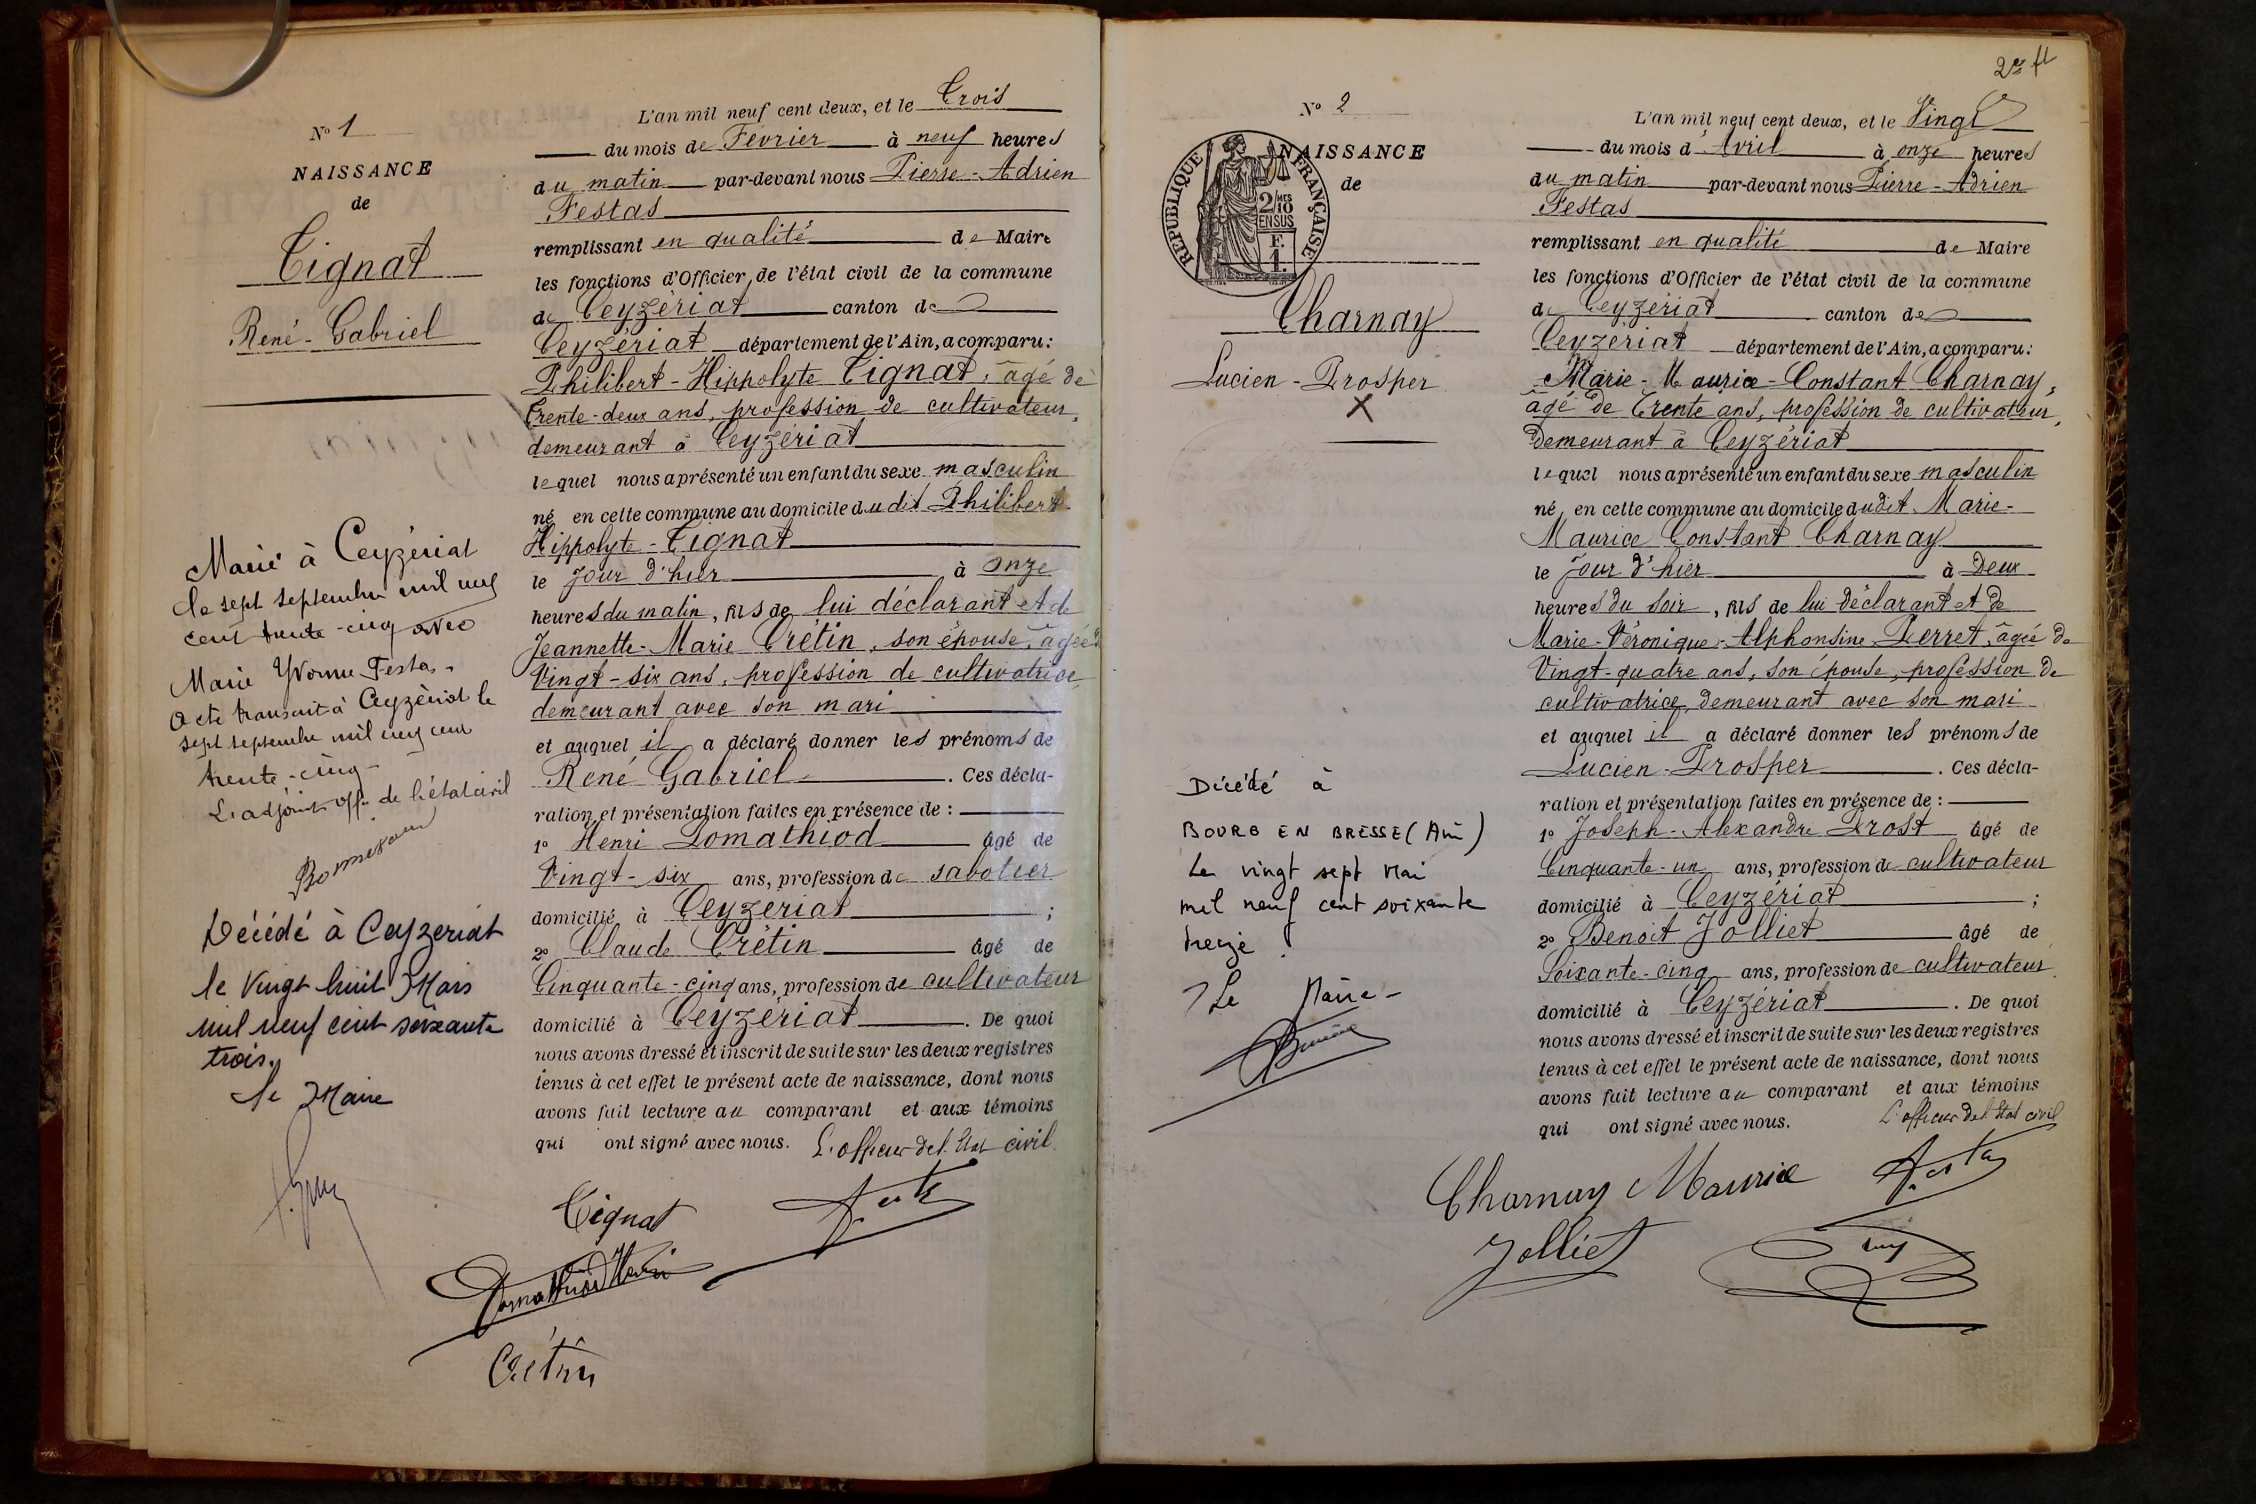 N° 1
NAISSANCE
de
Tignat
René-Gabriel
Marié à Ceyzériat
le sept septembre mil neuf
cent trente-cinq avec
Marie Yvonne Festas.
Acte transcrit à Ceyzériat le
sept septembre mil neuf cent
trente-cinq
L'adjoint off. de l'état civil
Décédé à Ceyzeriat
le Vingt huit Mars
mil neuf cent soixante
trois.
le Maire
L'an mil neuf cent deux, et le Trois
du mois de Février à neuf heures
du matin par-devant nous Pierre-Adrien
Festas
remplissant en qualité de Maire
les fonctions d'Officier de l'état civil de la commune
de Ceyzériat canton de
Ceyzériat département de l'Ain, a comparu:
Philibert-Hippolyte Tignat, âgé de
Trente-deux ans, profession de cultivateur,
demeurant à Ceyzériat
lequel nous a présenté un enfant du sexe masculin
né en cette commune au domicile du dit Philibert
Hippolyte-Tignat
le jour d'hier à onze
heures du matin, fils de lui déclarant et de
Jeannette-Marie Crétin, son épouse, âgée de
Vingt-six ans, profession de cultivatrice,
demeurant avec son mari
et auquel il a déclaré donner les prénoms de
René Gabriel. Ces décla-
ration et présentation faites en présence de:
1° Henri Domathiod âgé de
Vingt-six ans, profession de sabotier
domicilié à Ceyzériat;
2° Claude Crétin âgé de
Cinquante-cinq ans, profession de cultivateur
domicilié à Ceyzériat. De quoi
nous avons dressé et inscrit de suite sur les deux registres
tenus à cet effet le présent acte de naissance, dont nous
avons fait lecture au comparant et aux témoins
qui ont signé avec nous. L'officier de l'Etat civil
Tignat
Domathiod Henri
Crétin
2e f
N° 2
NAISSANCE
de
RÉPUBLIQUE FRANÇAISE
2/10 MES
EN SUS
F.
1.
Charnay
Lucien-Prosper
X
Décédé à
BOURG EN BRESSE (Ain)
Le vingt sept Mai
mil neuf cent soixante
treize.
Le Maire
L'an mil neuf cent deux, et le Vingt
du mois d'Avril à onze heures
du matin par-devant nous Pierre-Adrien
Festas
remplissant en qualité de Maire
les fonctions d'Officier de l'état civil de la commune
de Ceyzériat canton de
Ceyzériat département de l'Ain, a comparu:
Marie-Maurice-Constant Charnay,
âgé de Trente ans, profession de cultivateur,
demeurant à Ceyzériat
lequel nous a présenté un enfant du sexe masculin
né en cette commune au domicile dudit Marie-
Maurice Constant Charnay
le jour d'hier à Deux
heures du soir, fils de lui déclarant et de
Marie-Véronique-Alphonsine Perret, âgée de
Vingt-quatre ans, son épouse, profession de
cultivatrice, demeurant avec son mari
et auquel il a déclaré donner les prénoms de
Lucien-Prosper. Ces décla-
ration et présentation faites en présence de:
1° Joseph-Alexandre Prost âgé de
Cinquante-un ans, profession de cultivateur
domicilié à Ceyzériat;
2° Benoit Jolliet âgé de
Soixante-cinq ans, profession de cultivateur
domicilié à Ceyzériat. De quoi
nous avons dressé et inscrit de suite sur les deux registres
tenus à cet effet le présent acte de naissance, dont nous
avons fait lecture au comparant et aux témoins
qui ont signé avec nous. L'officier de l'Etat civil
Charnay Maurice Festas
Jolliet